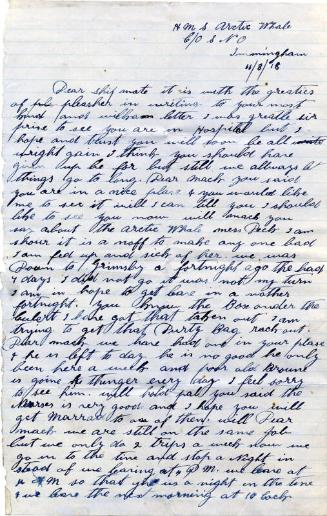 H M S Arctic Whale
C/O S N O
Immingham
4/3/18
Dear ship mate it is with the greaties
of pleasher in writin to your most
kind and welkam letter I was greatle sir
prise to see you are in Hospital but I
hope and trust you will soon be all
wright gain I think you should have
give in be for but still we allways let
things go to long Dear Mack you said
you are in a nice place & you would like
me to see it will I can tell you I should
like to see you now will Mack you
say about the Arctic Whale mess Deck I am
shour it is a nuff to make any one bad
I am feed up and sick of her we was
Down to Grimsby a fortnight ago the had
4 days I did not go it was not my turn
I am in hope to get leave in a nother
fortnight. you know the Box under the
I have got that taken out I am
trying to get that Dirty Bag rack out.
Dear mack we have had one in your place
& he is left to day he is no good he only
been here a week and poor old Browne
is going thunger every day I feel sorry
to see him. will hold pal you said the
Nurses is very good and I hope you will
get Married to one of them will Dear
mack we are still on the same job
but we only do 2 trips a week now we
go on to the tine and stop a Night in
stead of we leaving at 4 P.M. we leave at
4 A M so that give us a night in the tine
& we leave the next morning at 10 Clock